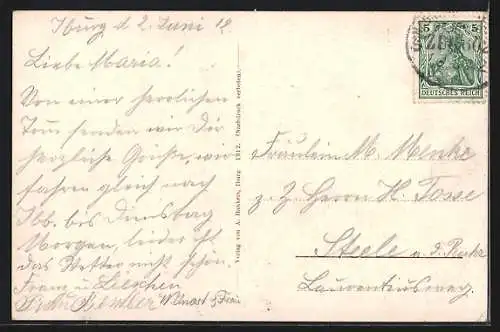 Iburg d 2. Juni 12
Liebe Maria!
Von einer herrlichen
Tour senden wir Dir
herzliche Grüße, wir
fahren gleich nach
Ibb. bis Dienstag
Morgen, leider ist
das Wetter nicht schön.
Franz u Lieschen
Frau
Verlag von A. Hankers, Iburg. 1912. (Nachdruck verboten).
5 5
DEUTSCHES REICH
Fräulein M. Menke
z. Z. Herrn H. Fosse
Steele a. d. Ruhr
Laurentiusweg.